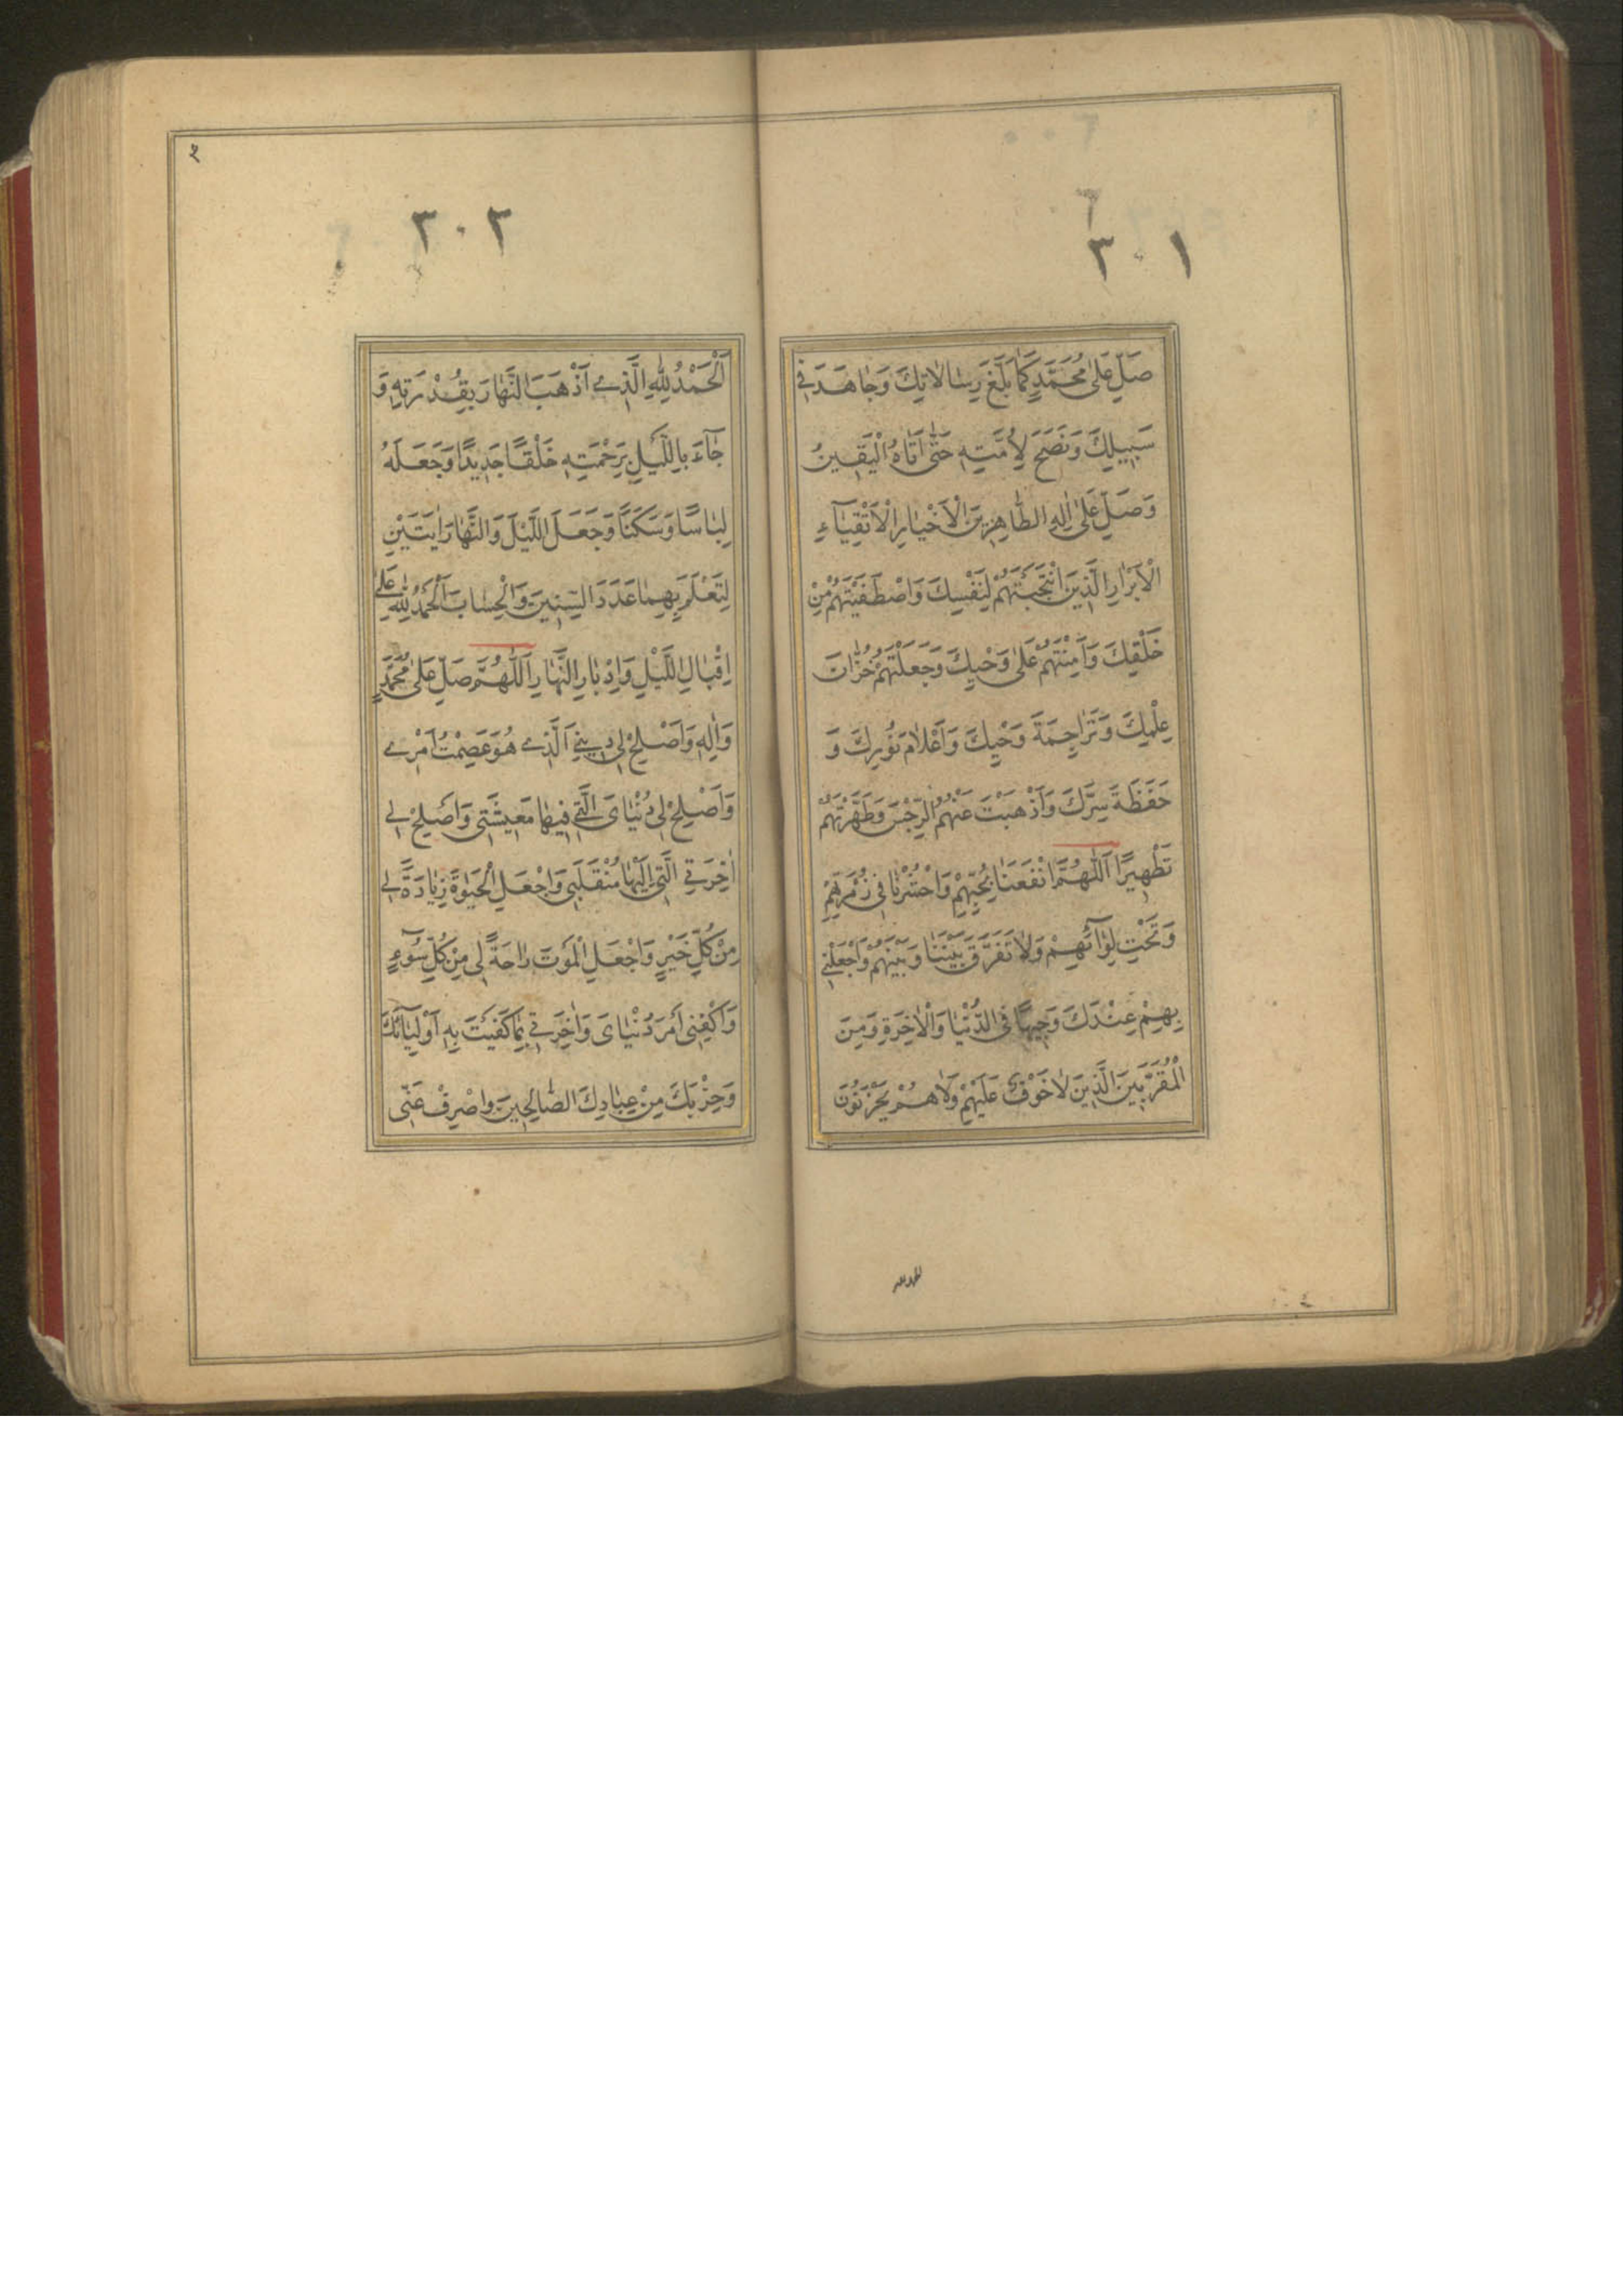 ٣٠١
صَلِّ عَلىٰ مُحَمَّدٍ كَمٰا بَلَّغَ رِسٰالاتِكَ وَجٰاهَدَ فِي
سَبِيلِكَ وَنَصَحَ لِأُمَّتِهِ حَتّٰى أَتٰاهُ الْيَقِينُ
وَصَلِّ عَلىٰ اٰلِهِ الطّٰاهِرِينَ الْأَخْيٰارِ الْأَتْقِيٰآءِ
الْأَبْرٰارِ الَّذِينَ انْتَجَبْتَهُمْ لِنَفْسِكَ وَاصْطَفَيْتَهُمْ مِنْ
خَلْقِكَ وَأَمِنْتَهُمْ عَلىٰ وَحْيِكَ وَجَعَلْتَهُمْ خُزّٰانَ
عِلْمِكَ وَتَرٰاجِمَةَ وَحْيِكَ وَأَعْلٰامَ نُورِكَ وَ
حَفَظَةَ سِرِّكَ وَأَذْهَبْتَ عَنْهُمُ الرِّجْسَ وَطَهَّرْتَهُمْ
تَطْهِيرًا اَللّٰهُمَّ انْفَعْنٰا بِحُبِّهِمْ وَاحْشُرْنٰا فِي زُمْرَتِهِمْ
وَتَحْتَ لِوٰآئِهِمْ وَلٰا تُفَرِّقْ بَيْنَنٰا وَبَيْنَهُمْ وَاجْعَلْنِي
بِهِمْ عِنْدَكَ وَجِيهًا فِي الدُّنْيٰا وَالْاٰخِرَةِ وَمِنَ
الْمُقَرَّبِينَ الَّذِينَ لٰا خَوْفٌ عَلَيْهِمْ وَلٰا هُمْ يَحْزَنُونَ
الحمدلله
٣٠٢
اَلْحَمْدُ لِلّٰهِ الَّذِي أَذْهَبَ النَّهٰارَ بِقُدْرَتِهِ وَ
جٰآءَ بِاللَّيْلِ بِرَحْمَتِهِ خَلْقًا جَدِيدًا وَجَعَلَهُ
لِبٰاسًا وَسَكَنًا وَجَعَلَ اللَّيْلَ وَالنَّهٰارَ اٰيَتَيْنِ
لِتَعْلَمَ بِهِمٰا عَدَدَ السِّنِينَ وَالْحِسٰابَ اَلْحَمْدُ لِلّٰهِ عَلىٰ
اِقْبٰالِ اللَّيْلِ وَاِدْبٰارِ النَّهٰارِ اَللّٰهُمَّ صَلِّ عَلىٰ مُحَمَّدٍ
وَاٰلِهِ وَاَصْلِحْ لِي دِينِيَ الَّذِي هُوَ عِصْمَتُ اَمْرِي
وَاَصْلِحْ لِي دُنْيٰايَ الَّتِي فِيهٰا مَعِيشَتِي وَاَصْلِحْ لِي
اٰخِرَتِي الَّتِي اِلَيْهٰا مُنْقَلَبِي وَاجْعَلِ الْحَيٰوةَ زِيٰادَةً لِي
مِنْ كُلِّ خَيْرٍ وَاجْعَلِ الْمَوْتَ رٰاحَةً لِي مِنْ كُلِّ سُوٓءٍ
وَاكْفِنِي أَمْرَ دُنْيٰايَ وَاٰخِرَتِي بِمٰا كَفَيْتَ بِهِ اَوْلِيٰآئَكَ
وَحِزْبَكَ مِنْ عِبٰادِكَ الصّٰالِحِينَ وَاصْرِفْ عَنِّي